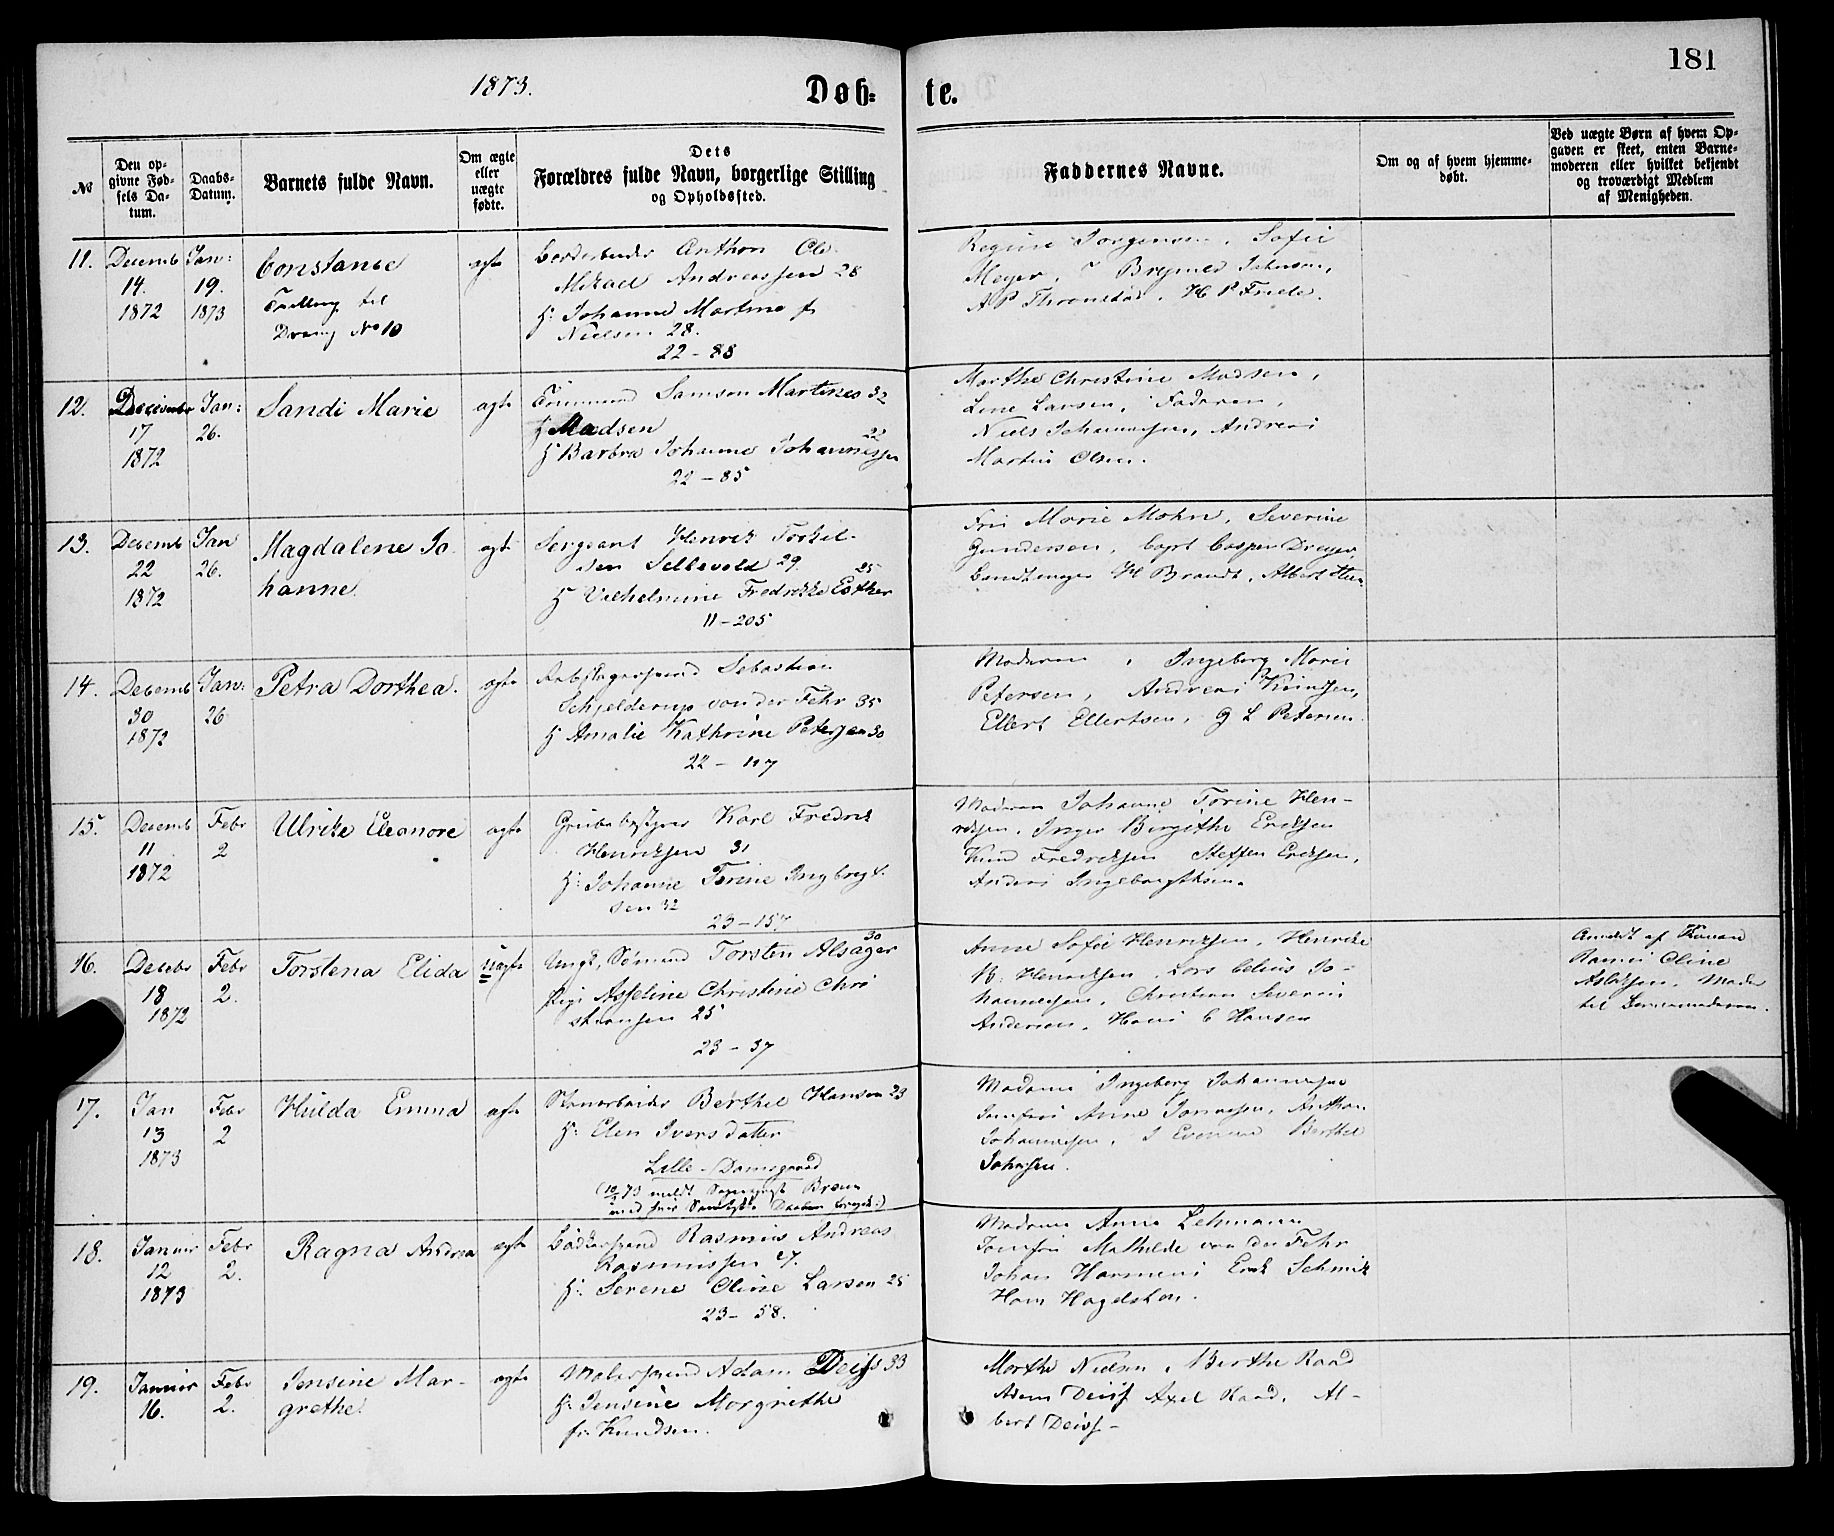 181
1873.
Døb= te.
№
Den op-
givne Fød-
sels Da-
tum.
Daabs-
Datum.
Barnets fulde Navn.
Om ægte
eller
uægte
fødte.
Dets
Forældres fulde Navn, borgerlige Stilling
og Opholdssted.
Faddernes Navne.
Om og af hvem hjemme-
døbt.
Ved uægte Børn af hvem Op-
gaven er skeet, enten Barne-
moderen eller hvilket bekjendt
og troværdigt Medlem
af Menigheden.
11.
Decemb
14.
1872
Jan:
19.
1873
Constance
Tvilling til
Dreng No 10
ægte
Anthon Ole
Mikael Andreassen 28
H: Johanne Martine f
Nielsen 28.
22 - 88
Regine Jørgensen, Sofie
Meyer, Johnsen,
A P Thronstad, H P Friele.
12.
December
17
1872
Jan:
26.
Sandi Marie
ægte
Tømmermd Samson Martines 32
Madsen
H Barbra Johanne Johannessen 22
22 - 85
Marthe Christine Madsen,
Line Larsen, Faderen,
Niels Johannessen, Andreas
Martin Olsen.
13.
Decemb
22
1872
Jan
26.
Magdalene Jo
hanne
ægte
Sergeant Henrik Torkil-
sen Sellevold 29.
H Vilhelmine Fredrikke Esther 25
11 - 205
Frk Marie Mohn, Severine
Gundersen, Capt Casper Dreyer,
H Brandt, Albert
14.
Decemb
30
1872
Jan:
26
Petra Dorthea.
ægte
Rebslagersvend Sebastian
Schjelderup von der Fehr 35
H Amalie Kathrine Petersen 30
22 - 117
Moderen, Ingeborg Marie
Petersen, Andreas Knudsen,
Ellert Ellertsen, G L Petersen.
15.
Decemb
11
1872
Febr
2
Ulrike Eleonore
ægte
Grubebestyrer Karl Fredrik
Henriksen 31
H: Johanne Torine Ingbregt-
sen 32
23 - 157
Moderen Johanne Torine Hen-
riksen, Inger Birgithe Eriksen
Knud Fredriksen Steffen Eriksen,
Anders Ingebregtsen.
16.
Decebr
18
1872
Febr
2.
Torstena Elida
uægte
Ungk, Sømand Torsten Alsager 30
Pige Asseline Christine Chri
stiansen 25
23 - 37
Anne Sofie Henriksen, Henrikke
B. Henriksen, Lars Celius Jo-
hannessen, Christian Severin
Andersen, Hans C Hansen
Anmeldt af Konen
Cline
Aslaksen, Moder
til Barnemoderen.
17.
Jan
13
1873
Febr
2
Hulda Emma
ægte
Berthel Hansen 23
H: Elen Iversdatter
Lille-Damsgaard
Madame Ingeborg Johannessen
Jomfru Anne Jonassen, Anthon
Johannessen, Berthel
Johnsen.
18.
Januar
12
1873
Febr
2.
Ragna Andrea
ægte
Bødkersvend Rasmus Andreas
Rasmussen 27.
H: Serene Oline Larsen 25
23 - 58.
Madame Anna Lehmann
Jomfru Mathilde von der Fehr
Johan Harmens Erik Schmidt
Hans Hagelsteen.
19.
Januar
16.
Febr
2.
Jensine Mar-
grethe.
ægte
Malersvend Adam Deiss 33
H: Jensine Margrethe
f: Knudsen.
Marthe Nielsen, Berthe Raad
Adam Deiss Axel Raad, Al-
bert Deiss-